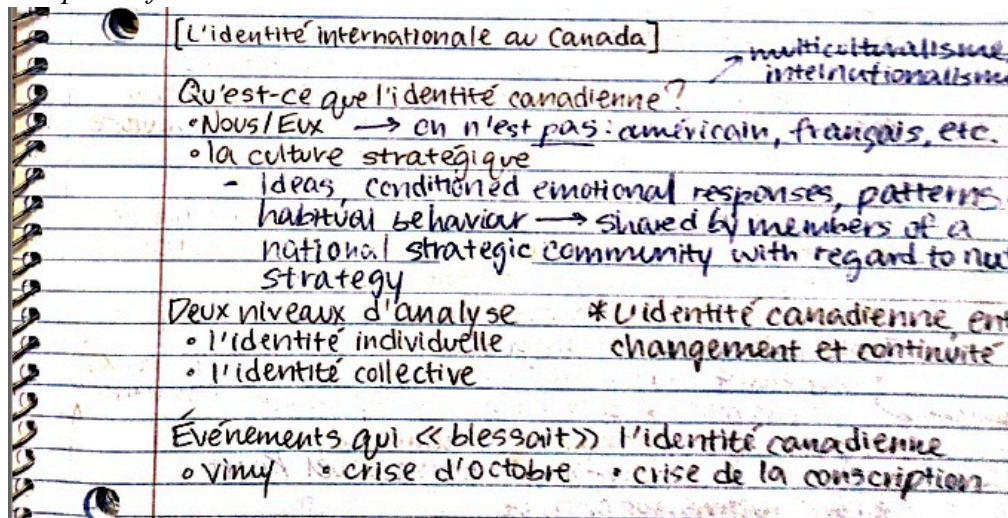 [L'identité internationale au Canada]
→ multiculturalisme,
internationalisme
Qu'est-ce que l'identité canadienne?
• Nous/Eux → on n'est pas: américain, français, etc.
• la culture stratégique
- Ideas, conditioned emotional responses, patterns
habitual behaviour → shared by members of a
national strategic community with regard to
strategy
Deux niveaux d'analyse
* L'identité canadienne,
changement et continuité
• l'identité individuelle
• l'identité collective
Événements qui << blessait >> l'identité canadienne
• Vimy • crise d'octobre • crise de la conscription